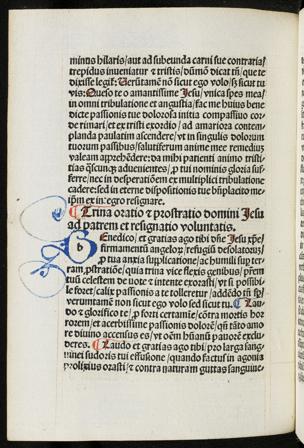 minus hilaris/aut ad subeunda carni sue contraria/
trepidus inueniatur ⁊ tristis/dūmō dicat tñ/que te
dixisse legit: Uerūtamē nō sicut ego volo/sꝫ sicut tu
vis: Queso te o amantissime Jesu/vnica spes mea/
in omni tribulatione et angustia/fac me huius bene
dicte passionis tue dolorosa initia compassiuo cor
de rimari/et ex tristi exordio/ad amariora contem
planda paulatim ascendere/vt in singulis dolorum
tuorum passibus/salutiferum anime mee remediū
valeam apprehēdere: da mihi patienti animo tristi
tias qscunqꝫ aduenientes/ꝑ tui nominis gloria suf
ferre/nec in desperationem ex multiplici tribulatione
cadere: sed in eterne dispositionis tue bñplacito me
ip̄m ex in ego resignare.
¶ Trina oratio ⁊ prostratio domini Jesu
ad patrem et resignatio voluntatis.
b Enedico/et gratias ago tibi dñe Jesu xp̄e/
firmamentū angeloꝝ/refugiū desolatoꝝ/
ꝓ tua anxia supplicatione/ac humili sup ter-
ram ꝓstratiōe/quia trina vice flexis genibus/prēm
tuū celestem de uote ⁊ intente exorasti/vt si possibi-
le foret/calix passionis a te tolleretur/addēdo tñ
verumtamē non sicut ego volo sed sicut tu. ¶ Lau-
do ⁊ glorifico te/ꝓ forti certamie/cōtra mortis hor
rorem/et acerbissime passionis dolorē/qñ tāto amo
re diuino accensus es/vt oēm hūanū pauorē exclu-
deres. ¶ Laudo et gratias ago tibi/pro larga sang-
uinei sudoris tui effusione/quando factus in agonia
prolixius orasti/⁊ contra naturam guttas sanguine-